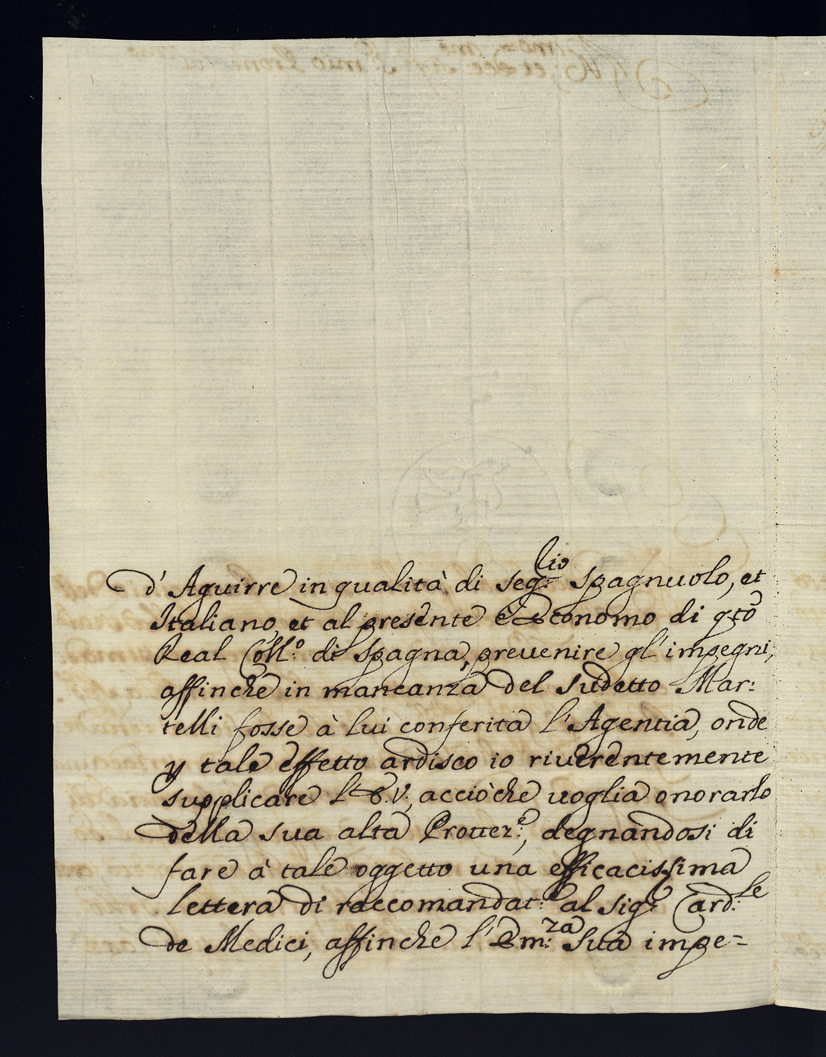 d' Aguirre in qualità di seg.rlio spagnuolo, et
Italiano, et al presente è Economo di q.to
Real Coll.o di Spagna, prevenire gl' impegni,
affinche in mancanza del sudetto Mar:
telli fosse à lui conferita l' Agentia, onde
p tale effetto ardisco io riverentemente
supplicare l' E.V. acciòche voglia onorarlo
della sua alta Protter.e, degnandosi di
fare à tale oggetto una efficacissima
lettera di raccomandat.e al sig.r Card.le
de Medici, affinche l' Em.za Sua impe=